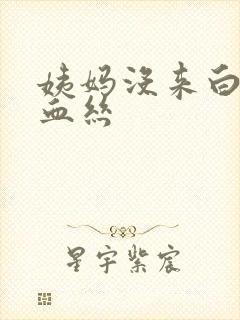 姨妈没来白
血丝
星宇紫宸